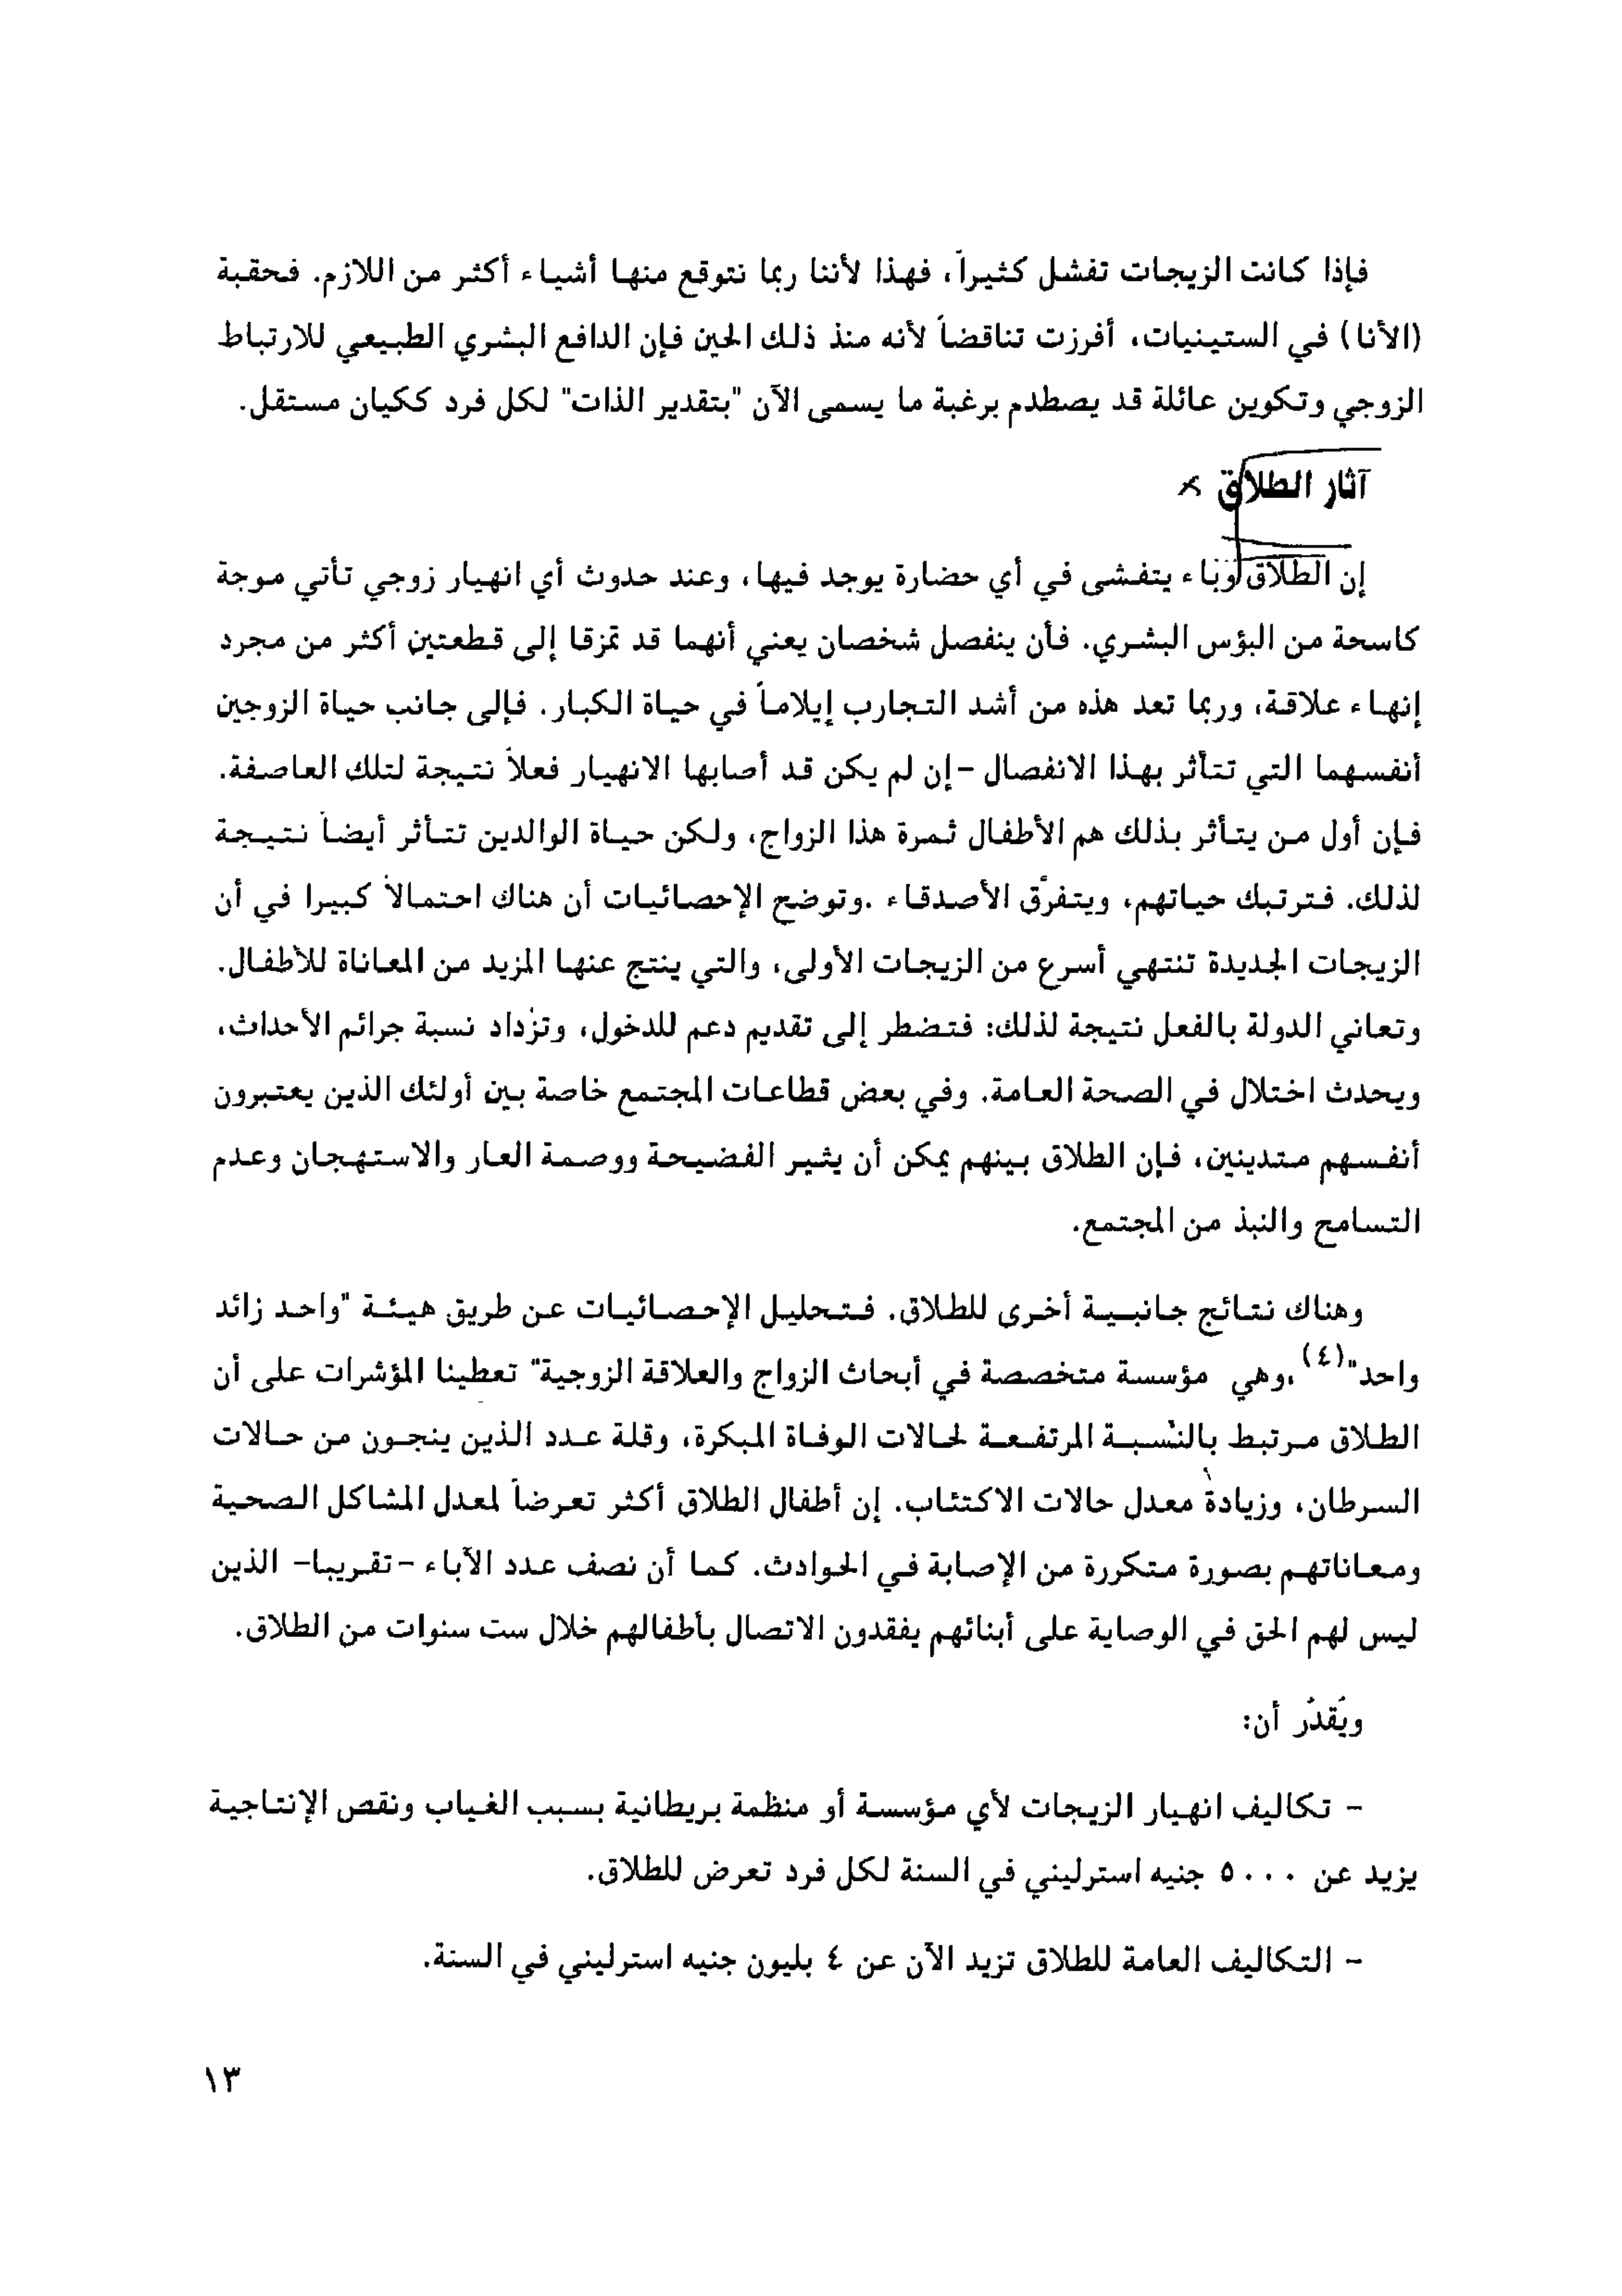 فإذا كانت الزيجات تفشل كثيراً، فهذا لأننا ربما نتوقع منها أشياء أكثر من اللازم. فحقبة
(الأنا) في الستينيات، أفرزت تناقضاً لأنه منذ ذلك الحين فإن الدافع البشري الطبيعي للارتباط
الزوجي وتكوين عائلة قد يصطدم برغبة ما يسمى الآن "بتقدير الذات" لكل فرد ككيان مستقل.
آثار الطلاق ×
إن الطلاق وباء يتفشى في أي حضارة يوجد فيها، وعند حدوث أي انهيار زوجي تأتي موجة
كاسحة من البؤس البشري. فأن ينفصل شخصان يعني أنهما قد تمزقا إلى قطعتين أكثر من مجرد
إنهاء علاقة، وربما تعد هذه من أشد التجارب إيلاماً في حياة الكبار. فإلى جانب حياة الزوجين
أنفسهما التي تتأثر بهذا الانفصال -إن لم يكن قد أصابها الانهيار فعلاً نتيجة لتلك العاصفة.
فإن أول من يتأثر بذلك هم الأطفال ثمرة هذا الزواج، ولكن حياة الوالدين تتأثر أيضاً نتيجة
لذلك. فترتبك حياتهم، ويتفرّق الأصدقاء .وتوضح الإحصائيات أن هناك احتمالاً كبيرا في أن
الزيجات الجديدة تنتهي أسرع من الزيجات الأولى، والتي ينتج عنها المزيد من المعاناة للأطفال.
وتعاني الدولة بالفعل نتيجة لذلك: فتضطر إلى تقديم دعم للدخول، وتزداد نسبة جرائم الأحداث،
ويحدث اختلال في الصحة العامة. وفي بعض قطاعات المجتمع خاصة بين أولئك الذين يعتبرون
أنفسهم متدينين، فإن الطلاق بينهم يمكن أن يثير الفضيحة ووصمة العار والاستهجان وعدم
التسامح والنبذ من المجتمع.
وهناك نتائج جانبية أخرى للطلاق. فتحليل الإحصائيات عن طريق هيئة "واحد زائد
واحد"(٤) ،وهي مؤسسة متخصصة في أبحاث الزواج والعلاقة الزوجية" تعطينا المؤشرات على أن
الطلاق مرتبط بالنسبة المرتفعة لحالات الوفاة المبكرة، وقلة عدد الذين ينجون من حالات
السرطان، وزيادة معدل حالات الاكتئاب. إن أطفال الطلاق أكثر تعرضاً لمعدل المشاكل الصحية
ومعاناتهم بصورة متكررة من الإصابة في الحوادث. كما أن نصف عدد الآباء -تقريبا- الذين
ليس لهم الحق في الوصاية على أبنائهم يفقدون الاتصال بأطفالهم خلال ست سنوات من الطلاق.
ويُقدّر أن:
- تكاليف انهيار الزيجات لأي مؤسسة أو منظمة بريطانية بسبب الغياب ونقص الإنتاجية
يزيد عن ٥٠٠٠ جنيه استرليني في السنة لكل فرد تعرض للطلاق.
- التكاليف العامة للطلاق تزيد الآن عن ٤ بليون جنيه استرليني في السنة.
١٣